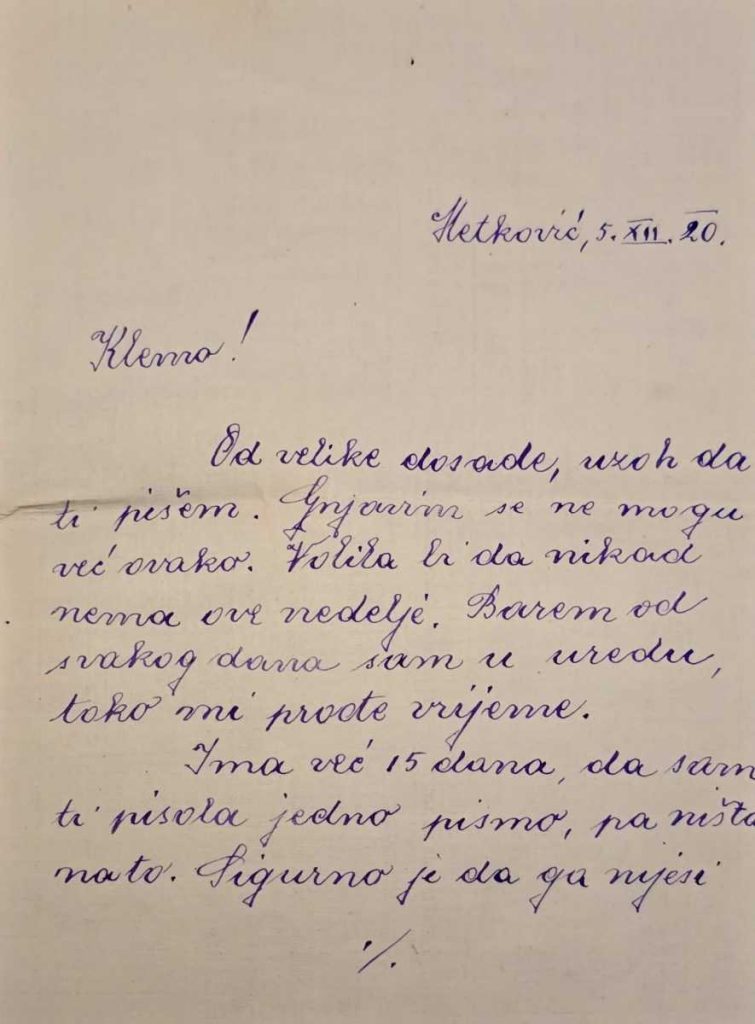 Metković, 5. XII. 20.
Klemo!
Od velike dosade, uzoh da
ti pišem. Gnjavim se ne mogu
već ovako. Volila bi da nikad
nema ove nedelje. Barem od
svakog dana sam u uredu,
tako mi prođe vrijeme.
Ima već 15 dana, da sam
ti pisala jedno pismo, pa ništa
na to. Sigurno je da ga nijesi
./.